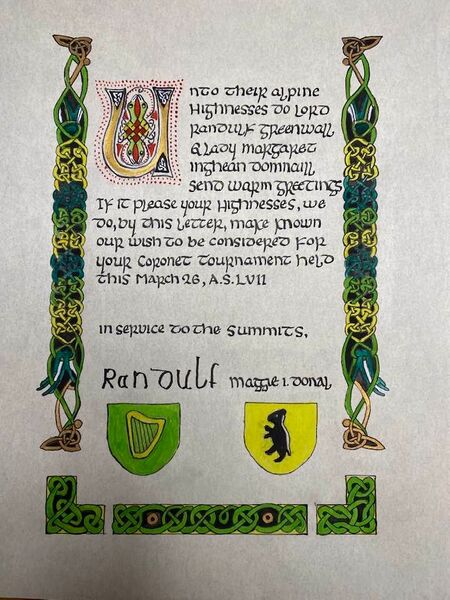 Unto their Alpine
Highnesses do Lord
Randulf Greenwall
& Lady Margaret
inghean Domnaill
send warm greetings
If it please your Highnesses, we
do, by this letter, make known
our wish to be considered for
your Coronet Tournament held
this March 26, A.S. LVII
in service to the Summits,
Randulf Maggie i. Donal